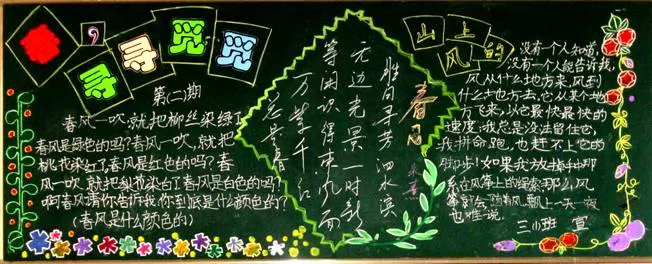 寻寻觅觅
第(二)期
春风一吹,就把柳丝染绿了
春风是绿色的吗?春风一吹,就把
桃花染红了,春风是红色的吗?春
风一吹,就把梨花染白了,春风是白色的吗?
啊春风请你告诉我你到底是什么颜色的?
(春风是什么颜色的)
春日
朱熹
胜日寻芳泗水滨
无边光景一时新
等闲识得东风面
万紫千红
总是春
山上
风
没有一个人知道,
没有一个人能告诉我,
风从什么地方来,风到
什么地方去。它从某个地
方飞来,以它最快最快的
速度,我总是没法留住它,
我拼命跑,也赶不上它的
脚步!如果我放掉手那
系在风筝上的绳索,那么风
筝就会随着风飘上一天一夜
也难说
三小班 宣